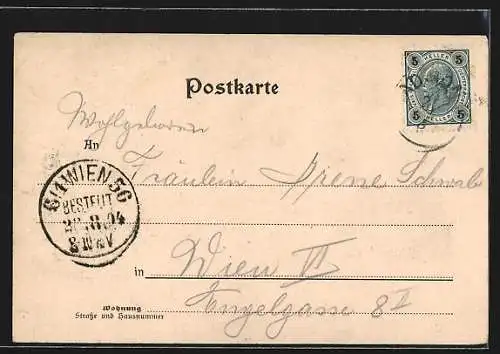 5 HELLER 5
5 HELLER 5
Postkarte
Wohlgeboren
An Fräulein Irene Schwab
6/1 WIEN 56
BESTELLT
8
in Wien VI
Wohnung
Straße und Hausnummer
Engelgasse 8